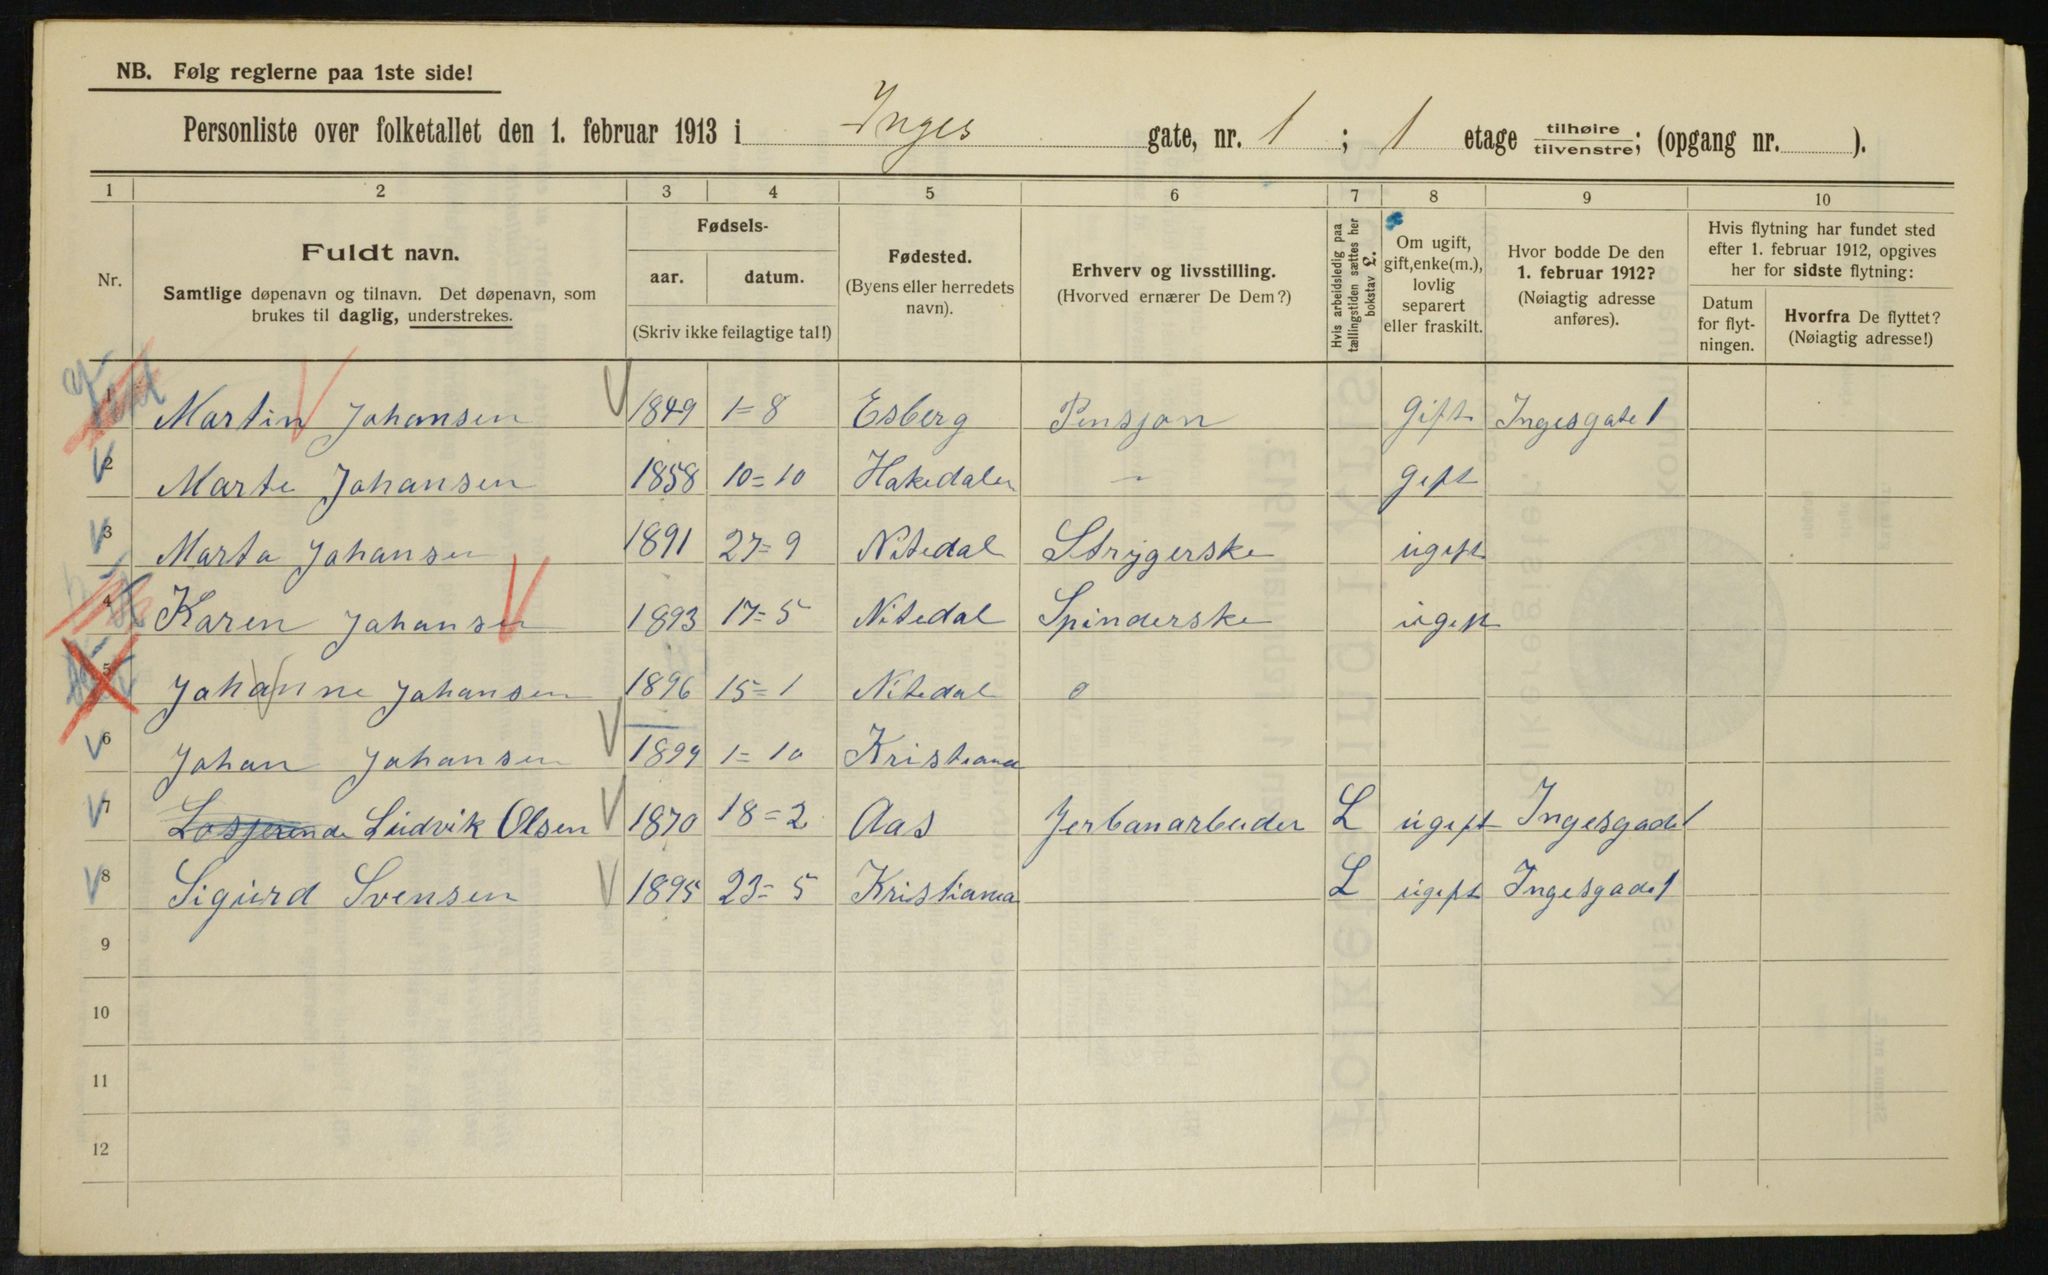 NB. Følg reglerne paa 1ste side!
Personliste over folketallet den 1. februar 1913 i Inges gate, nr. 1 ; 1 etage tilhøire tilvenstre; (opgang nr. ).
1 2 3 4 5 6 7 8 9 10
Nr.
Fuldt navn.
Samtlige døpenavn og tilnavn. Det døpenavn, som
brukes til daglig, understrekes.
Fødsels-
aar. datum.
(Skriv ikke feilagtige tal!)
Fødested.
(Byens eller herredets
navn).
Erhverv og livsstilling.
(Hvorved ernærer De Dem?)
Hvis arbeidsledig paa
tællingstiden sættes her
bokstav L.
Om ugift,
gift, enke(m.),
lovlig
separert
eller fraskilt.
Hvor bodde De den
1. februar 1912?
(Nøiagtig adresse
anføres).
Hvis flytning har fundet sted
efter 1. februar 1912, opgives
her for sidste flytning:
Datum
for flyt-
ningen.
Hvorfra De flyttet?
(Nøiagtig adresse!)
1 Martin Johansen 1849 1=8 Esberg Pensjon Gift Ingesgate 1
2 Marte Johansen 1858 10=10 Hakedalen – gift
3 Marta Johansen 1891 27=9 Nitedal Strygerske ugift
4 Karen Johansen 1893 17=5 Nitedal Spinderske ugift
5 Johanne Johansen 1896 15=1 Nitedal o
6 Johan Johansen 1899 1=10 Kristiania
7 Losjerende Ludvik Olsen 1870 18=2 Aas Jerbanarbeider L ugift Ingesgade 1
8 Sigurd Svensen 1895 23=5 Kristiania L ugift Ingesgade 1
9
10
11
12